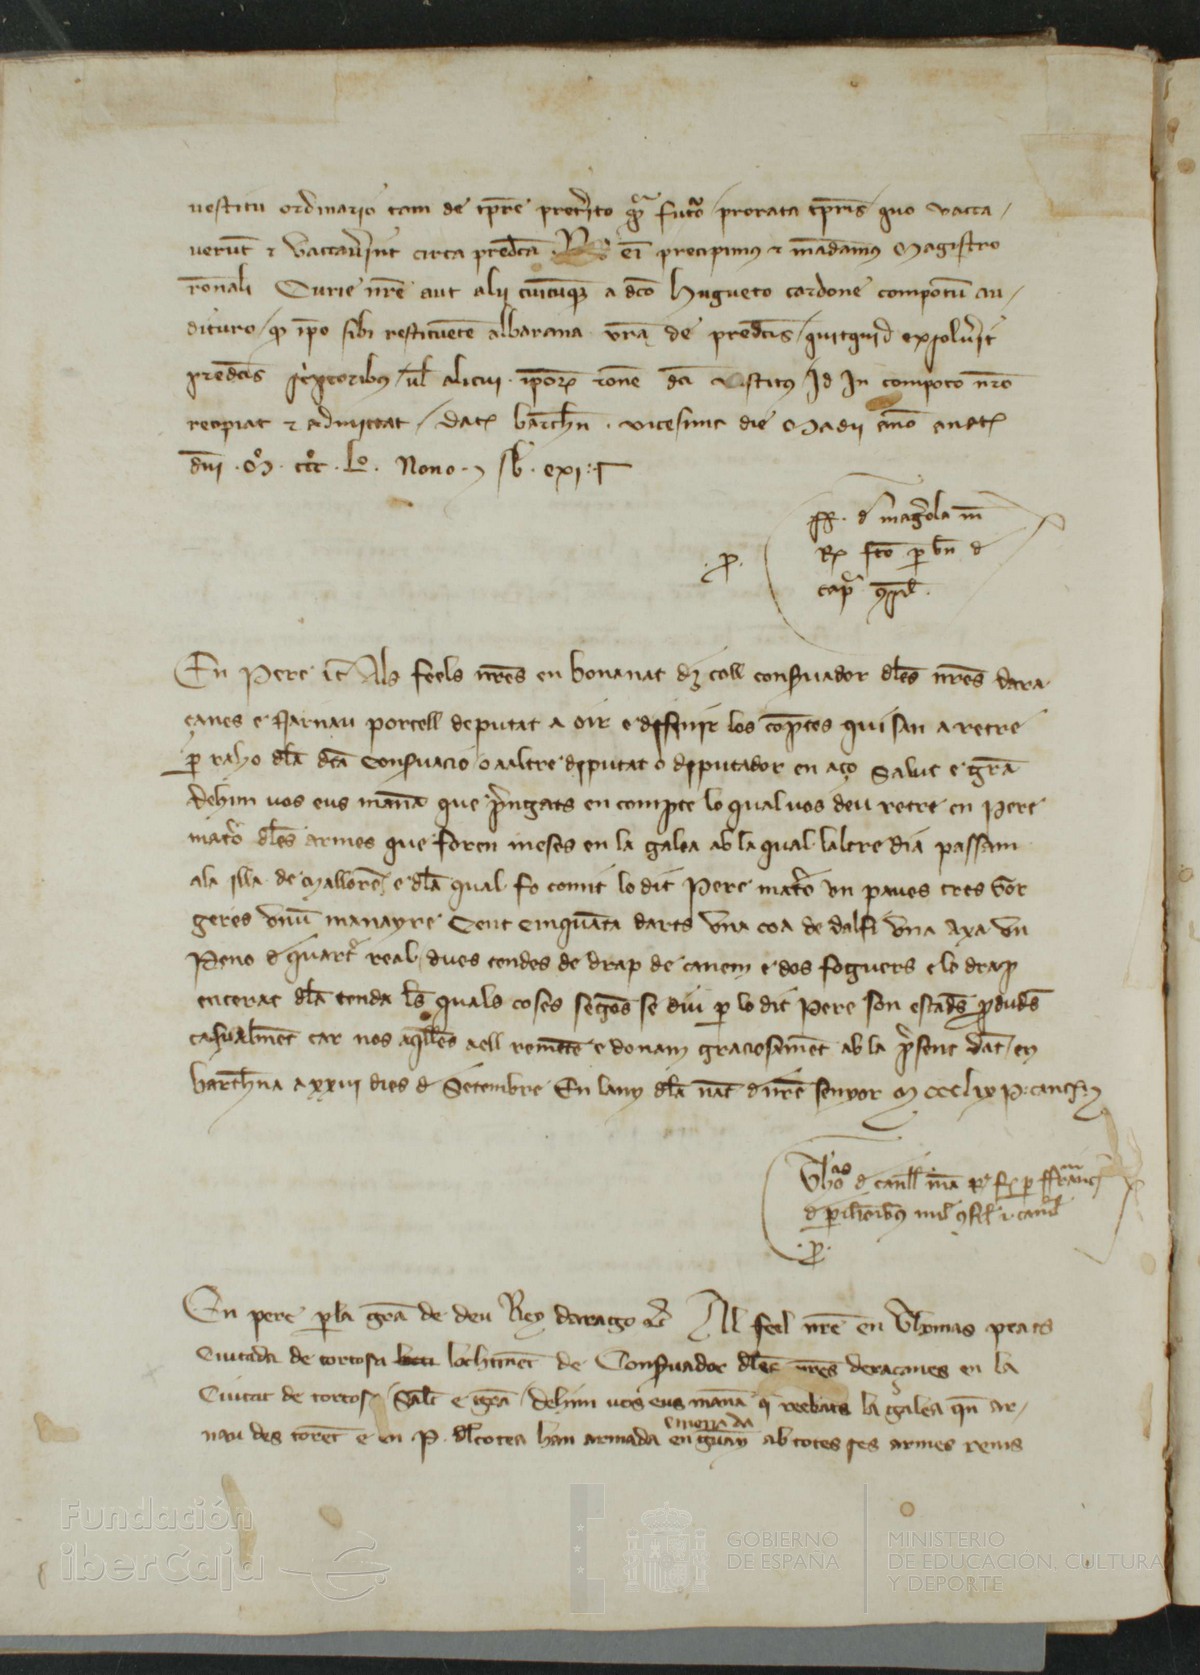 vestitu ordinario tam de tpre preterito qm futuro prorata tpris quo vacca
verunt et vaccaverint circa predca ei precipimus et mandamus Magistro
ronali Curie nre aut alii cuicumque a dco Hugueto cardone compotum au
dituro q ipo sibi restituente albarana vra de predcis quitquid exsolverit
predcis scriptoribus vel alicui ipor rone dci vestitus id in compoto nro
recipiat et admittat dat barchn vicesima die Madii anno a nat
dni Mo CCCo Lo Nono
d magerola
fco p bn d
En Pere etc Als feels nres en bonanat dez coll consvador dles nres dara
çanes e Narnau porcell deputat a oir e difinir los comptes qui san a retre
p raho dla dta Consvacio o a altre deputat o deputador en aço Salut e gra
Dehim vos eus manam que prengats en compte lo qual vos deu retre en Pere
mater dles armes que foren meses en la galea ab la qual laltre dia passam
ala illa de Mallorc e dla qual fo comit lo dit Pere mater un paves tres
geres manayre Cent cinquanta darts una coa de dalfi una axa un
Peno d quarter real dues tendes de drap de canem e dos foguers e lo drap
encerat dla tenda les quals coses segons se diu p lo dit Pere son estades perdudes
casualment car nos aquelles a ell remetem e donam graciosament ab la present dat en
barchna a xxvi dies d Setembre En lany dla nat d nre senyor M CCC lix P: canc
p ffranc
En pere p la gra de deu Rey darago etc Al feel nre en Thomas prats
Ciutada de tortosa lochtinent de Consvador dles nres deraçanes en la
Ciutat de tortosa Salut e gra Dehim vos eus manam q reebats la galea qn ar
nau des torrent e en P. dl cotea han armada en guany ab totes ses armes rems
Fundación
iberCaja
GOBIERNO
DE ESPAÑA
MINISTERIO
DE EDUCACIÓN, CULTURA
Y DEPORTE